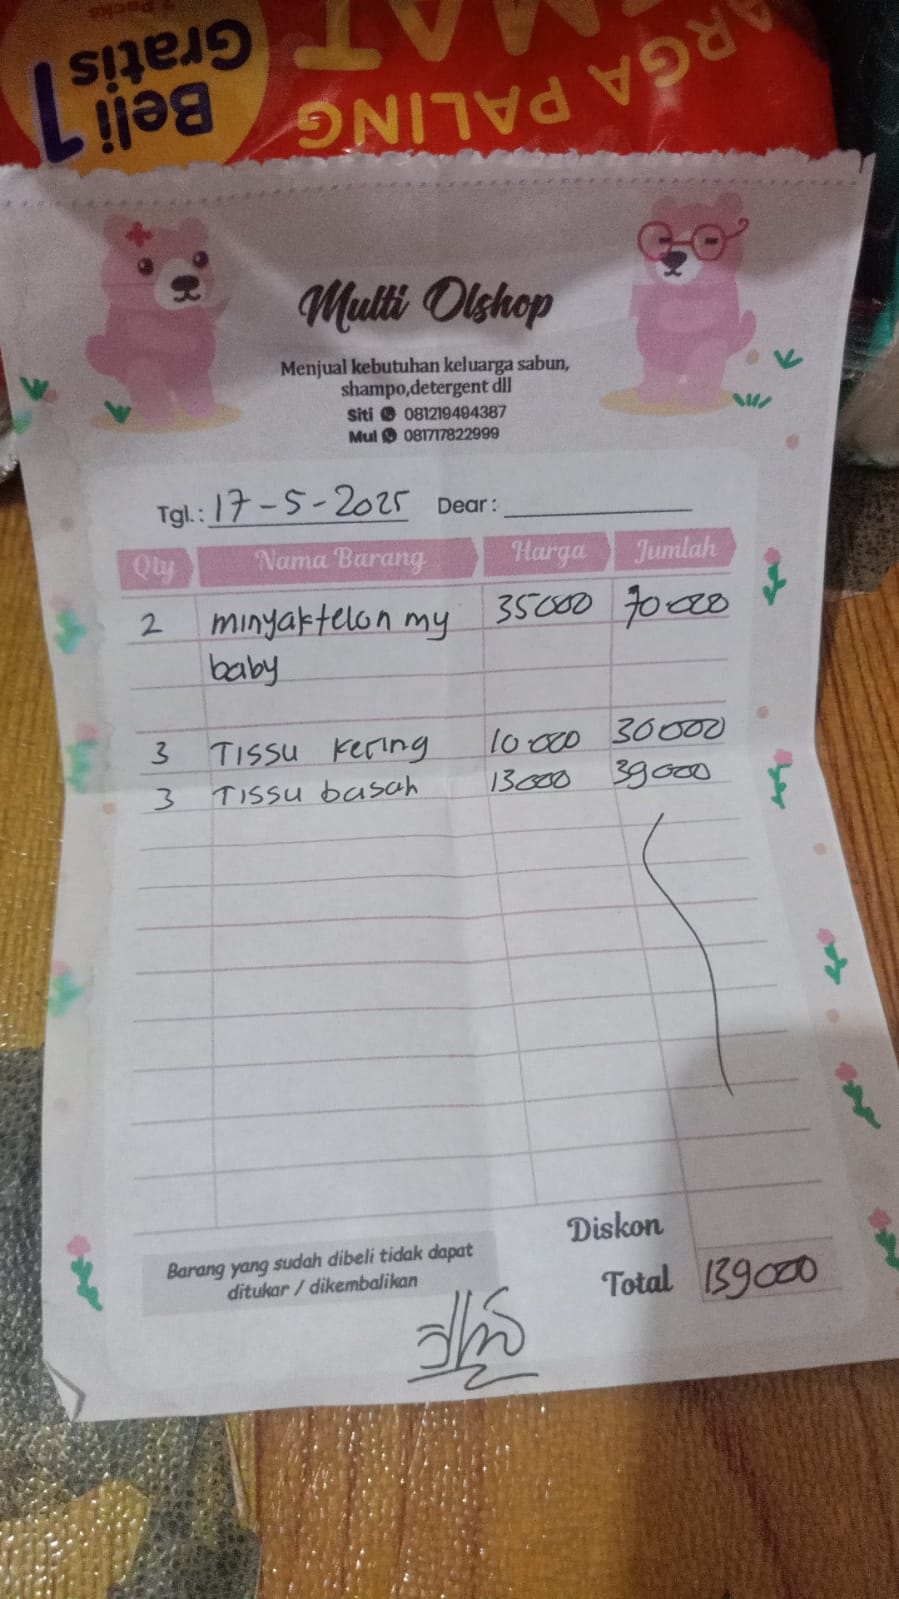 Beli 1
Gratis
HARGA PALING
Multi Olshop
Menjual kebutuhan keluarga sabun,
shampo,detergent dll
Siti 081219494387
Mul 081717822999
Tgl.: 17-5-2025 Dear :
Qty Nama Barang Harga Jumlah
2 minyaktelon my 35000 70.000
baby
3 Tissu kering 10.000 30000
3 Tissu basah 13000 39000
Diskon
Barang yang sudah dibeli tidak dapat
ditukar / dikembalikan
Total 139000